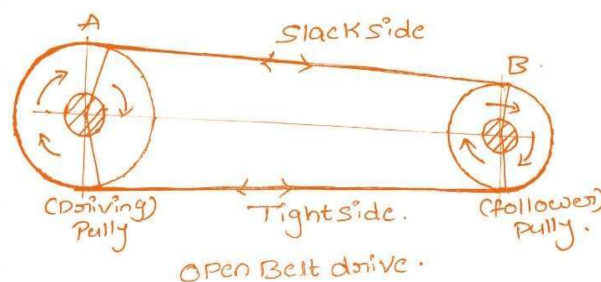 A
Slack side
B.
(Driving)
Pully
Tight side.
(follower)
Pully.
Open Belt drive.